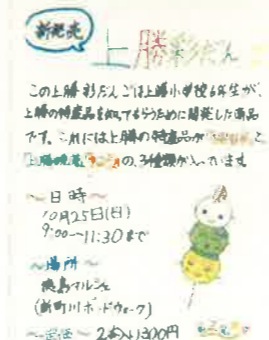 新発売
上勝彩だんご
この上勝彩だんごは上勝小学校6年生が、
上勝の特産品を知ってもらうために開発した商品
です。これには上勝の特産品が
の、3種類が入っています
~日時~
10月25日(日)
9:00~11:30まで
~場所~
徳島マルシェ
(新町川ボードウォーク)
~定価~ 2本入り300円